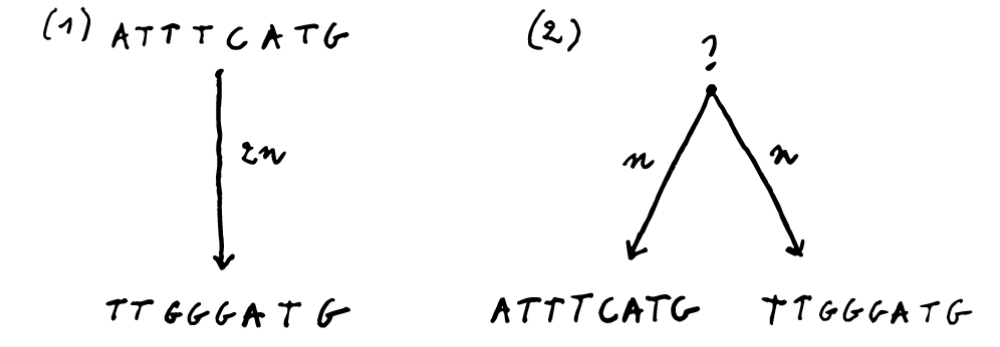 (1) ATTTCATG
2n
TTGGGATG
(2)
?
n n
ATTTCATG TTGGGATG